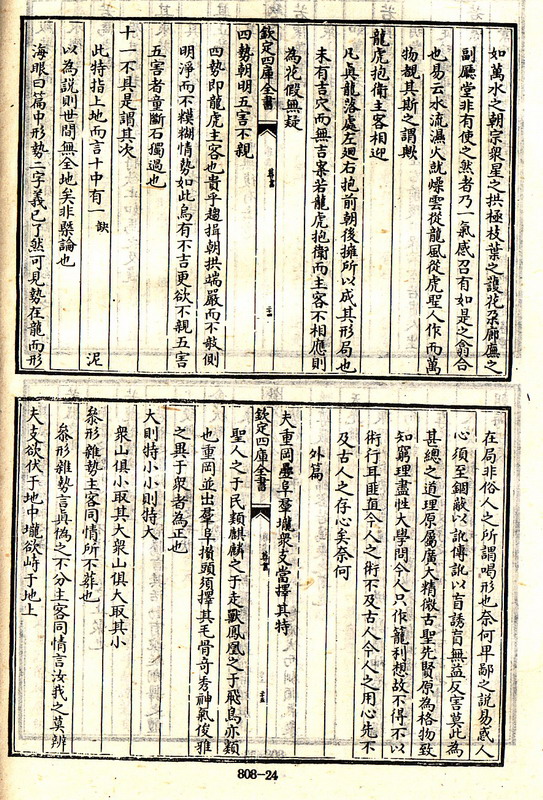 如萬水之朝宗衆星之拱極枝葉之護花朶廊廡之
副廳堂非有使之然者乃一氣感召有如是之翕合
也易云水流濕火就燥雲從龍風從虎聖人作而萬
物覩其斯之謂歟
龍虎抱衛主客相迎
凡真龍落處左迴右抱前朝後擁所以成其形局也
未有吉穴而無吉案若龍虎抱衛而主客不相應則
為花假無疑
欽定四庫全書
葬書
四勢朝明五害不親
四勢即龍虎主客也貴乎趨揖朝拱端嚴而不欹側
明淨而不糢糊情勢如此烏有不吉更欲不親五害
五害者童斷石獨過也
十一不具是謂其次
此特指上地而言十中有一缺 泥
以為說則世間無全地矣非槩論也
海眼曰篇中形勢二字義已了然可見勢在龍而形
在局非俗人之所謂喝形也奈何卑鄙之說易惑人
心須至錮蔽以訛傳訛以盲誘盲無益反害莫此為
甚總之道理原屬廣大精微古聖先賢原為格物致
知窮理盡性大學問今人只作籠利想故不得不以
術行耳匪直今人之術不及古人今人之用心先不
及古人之存心矣奈何
外篇
夫重岡疊阜羣壠衆支當擇其特
欽定四庫全書
葬書
聖人之于民類麒麟之于走獸鳳凰之于飛鳥亦類
也重岡並出羣阜攢頭須擇其毛骨奇秀神氣俊雅
之異于衆者為正也
大則特小小則特大
衆山俱小取其大衆山俱大取其小
叅形雜勢主客同情所不葬也
叅形雜勢言真偽之不分主客同情言汝我之莫辨
夫支欲伏于地中壠欲峙于地上
808-24